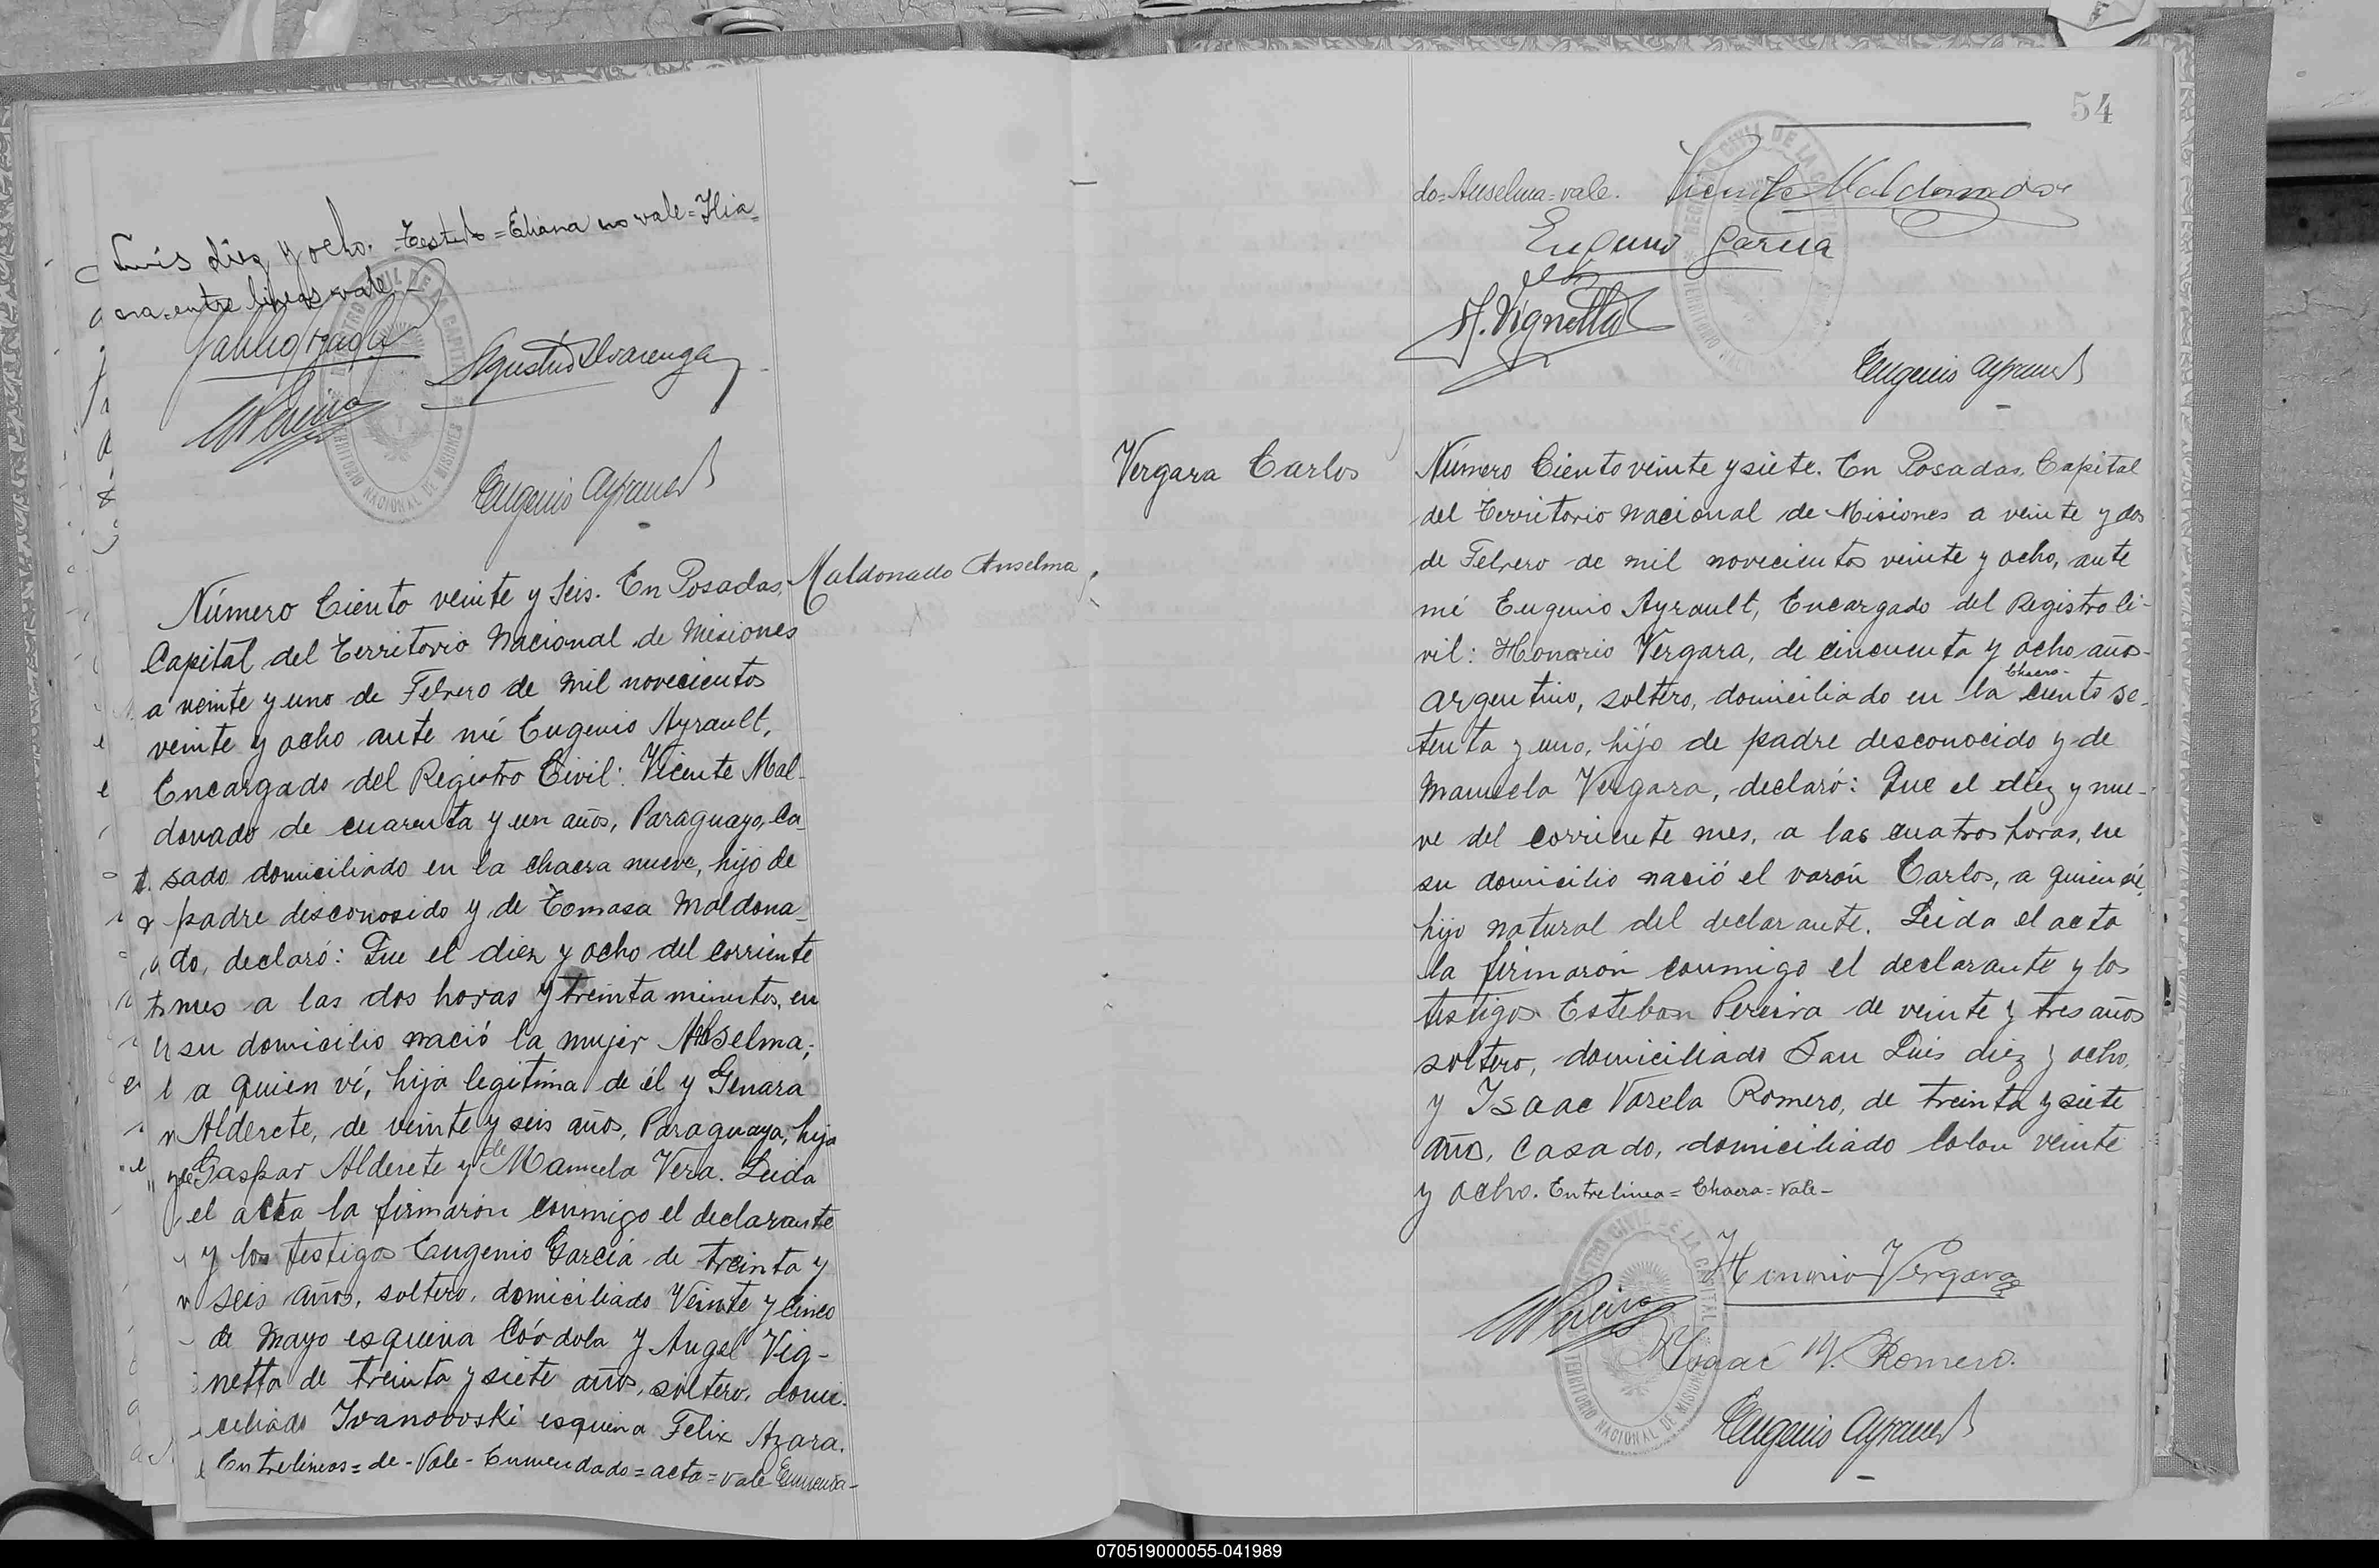 Luis diez y ocho. Testado=Eliana no vale=Ilia=
na=entre lineas vale
Agustin Alvarenga
Eugenio Ayrault
REGISTRO CIVIL DE LA CAPITAL
TERRITORIO NACIONAL DE MISIONES
Maldonado Anselma
Número Ciento veinte y Seis. En Posadas,
Capital del Territorio Nacional de Misiones
a veinte y uno de Febrero de mil novecientos
veinte y ocho ante mí Eugenio Ayrault,
Encargado del Registro Civil: Vicente Mal-
donado de cuarenta y un años, Paraguayo, Ca-
sado domiciliado en la chacra nueve, hijo de
padre desconosido y de Tomasa Maldona-
do, declaró: Que el diez y ocho del corriente
mes a las dos horas y treinta minutos, en
su domicilio nació la mujer Anselma,
a quien ví, hija legitima de él y Genara
Alderete, de veinte y seis años, Paraguaya, hija
de Gaspar Alderete y de Manuela Vera. Leida
el acta la firmarón conmigo el declarante
y los testigos Eugenio García de treinta y
seis años, soltero, domiciliado Veinte y Cinco
de Mayo esquina Córdoba y Angel Vig-
netta de treinta y siete años, soltero, domi-
ciliado Ivanoovski esquina Felix Azara.
Entrelineas=de-Vale-Enmendado=acta=vale Enmenda-
54
do=Anselma=vale. Vicente Maldonado
Eugenio Garcia
A. Vignetta
Eugenio Ayrault
Vergara Carlos
Número Ciento veinte y siete. En Posadas, Capital
del Territorio Nacional de Misiones a veinte y dos
de Febrero de mil novecientos veinte y ocho, ante
mí Eugenio Ayrault, Encargado del Registro Ci-
vil: Honorio Vergara, de cincuenta y ocho años-
argentino, soltero, domiciliado en la chacra ciento se-
tenta y uno, hijo de padre desconocido y de
Manuela Vergara, declaró: Que el diez y nue-
ve del corriente mes, a las cuatro horas, en
su domicilio nació el varón Carlos, a quien ví,
hijo natural del declarante. Leida el acta
la firmarón conmigo el declarante y los
testigos Esteban Pereira de veinte y tres años
soltero, domiciliado San Luis diez y ocho,
y Isaac Varela Romero, de treinta y siete
años, casado, domiciliado Colon veinte
y ocho. Entrelinea=Chacra=Vale-
Honorio Vergara
Isaac V. Romero.
Eugenio Ayrault
REGISTRO CIVIL DE LA CAPITAL
TERRITORIO NACIONAL DE MISIONES
070519000055-041989